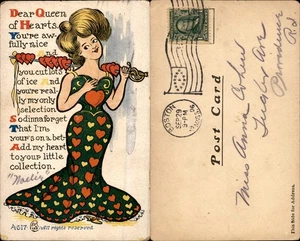 Dear Queen
of Hearts
You're aw-
fully nice
and
you cut lots
of ice
And
you're real-
ly my only
selection
So dinna forget
That I'm
yours on a bet
Add my heart
to your little
collection.
A-617
All rights reserved
Post Card
BOSTON
SEP 29
PM
MASS
Miss Annie
Ave
Providence
R.I.
This Side for Address.